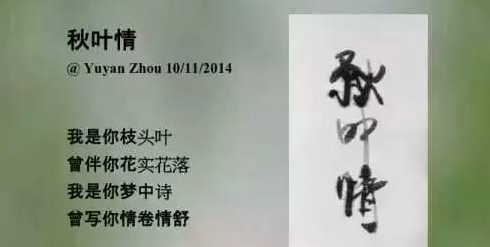 秋叶情
@ Yuyan Zhou 10/11/2014
我是你枝头叶
曾伴你花实花落
我是你梦中诗
曾写你情卷情舒
秋叶情